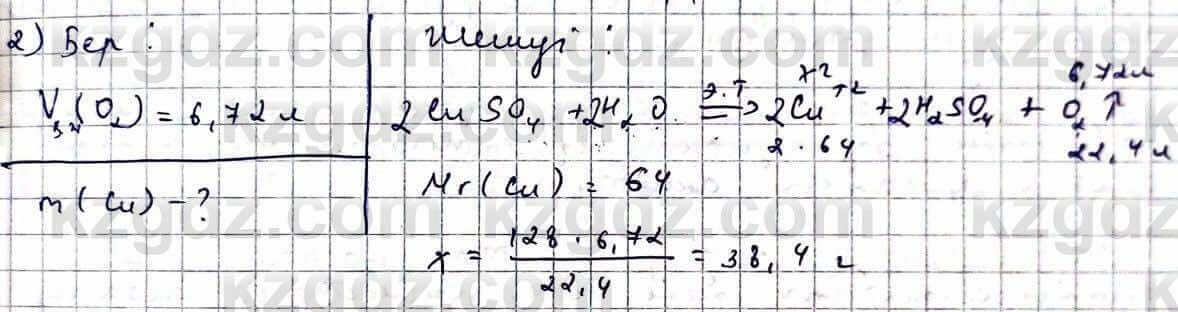 2) Бер :
V₃ₙ(O₂) = 6,72 л
m(Cu) – ?
Шешуі :
x г 6,72 л
2CuSO₄ + 2H₂O э.т ⇒ 2Cu⁺² + 2H₂SO₄ + O₂↑
2 · 64 22,4 л
Mr(Cu) = 64
x = 128 · 6,72 / 22,4 = 38,4 г
kzgdz.com